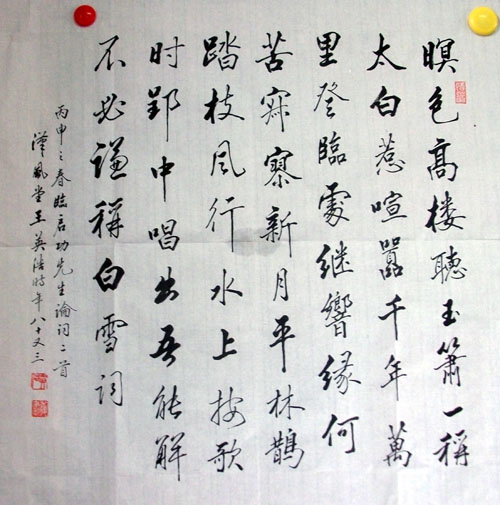 暝色高楼聽玉簫一稱
太白惹喧嚣千年萬
里登臨處继響缘何
苦寂寥新月平林鵲
踏枝風行水上按歌
时郢中唱出吾能解
不必谦稱白雪词
丙申之春临启功先生论词二首
漢風堂王英浩时年八十又三